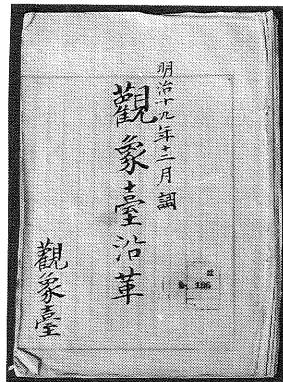 明治十九年十二月調
觀象臺沿革
觀象臺
186